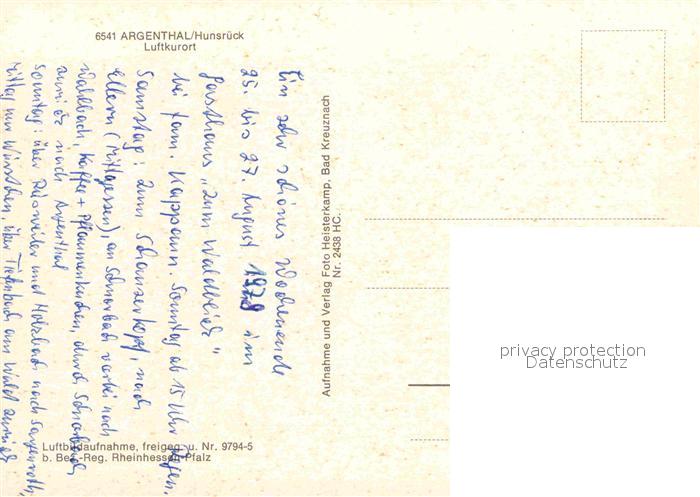 6541 ARGENTHAL/Hunsrück
Luftkurort
Ein sehr schönes Wochenende
25. bis 27. August 1978 im
Gasthaus „Zum Waldbeid"
bei Fam. Kappaun. Sonntag ab 15 Uhr
Samstag: zum Schanzerkopf, nach
Ellern (Mittagessen), an Schnorbach vorbei nach
Wahlbach, Kaffee + Pflaumenkuchen, durch Schnorbach
zurück nach Argenthal
Sonntag: über Riesweiler und Holzbach nach
Mittag nur Würstchen, über Tiefenbach am Wald zurück
Aufnahme und Verlag Foto Heisterkamp, Bad Kreuznach
Nr. 2438 HC.
Luftbildaufnahme, freigeg. u. Nr. 9794-5
b. Bez.-Reg. Rheinhessen-Pfalz
privacy protection
Datenschutz